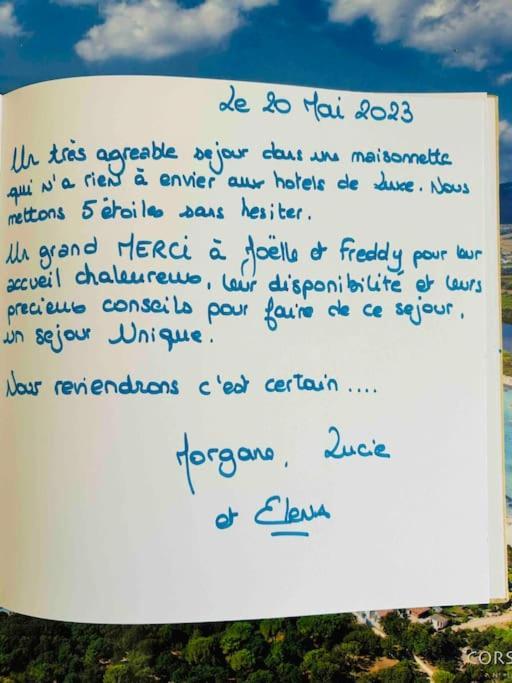 Le 20 Mai 2023
Un très agreable sejour dans une maisonnette
qui n'a rien à envier aux hotels de Luxe. Nous
mettons 5 étoiles sans hesiter.
Un grand MERCI à Joëlle et Freddy pour leur
accueil chaleureux, leur disponibilité et leurs
precieux conseils pour faire de ce sejour,
un sejour Unique.
Nous reviendrons c'est certain ....
Morgane, Lucie
et Elena
CORS